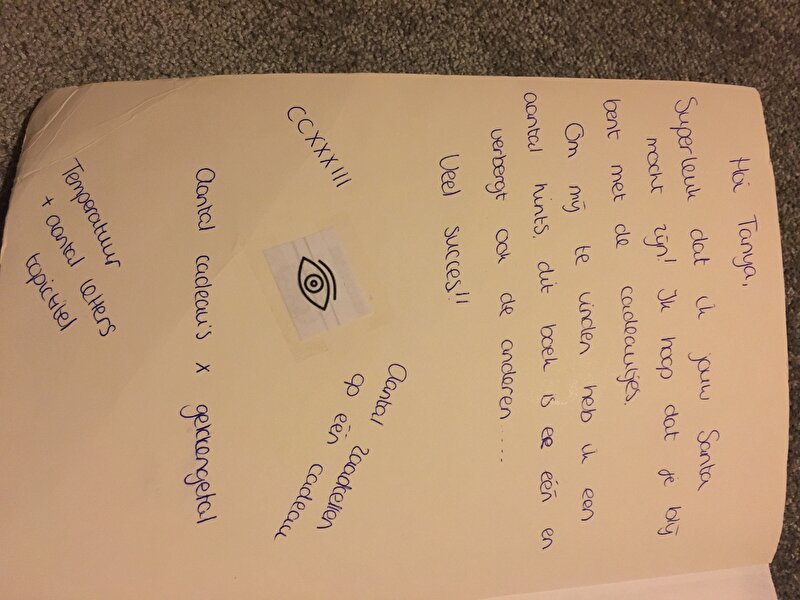 Hoi Tanya,
Superleuk dat ik jouw Santa
mocht zijn! Ik hoop dat je blij
bent met de cadeautjes.
Om mij te vinden heb ik een
aantal hints. dit boek is er één en
verbergt ook de anderen.....
Veel succes!!
CCXXXIII
Aantal
op één cadeau
Aantal cadeau's x gekkengetal
Temperatuur
+ aantal letters
topictitel